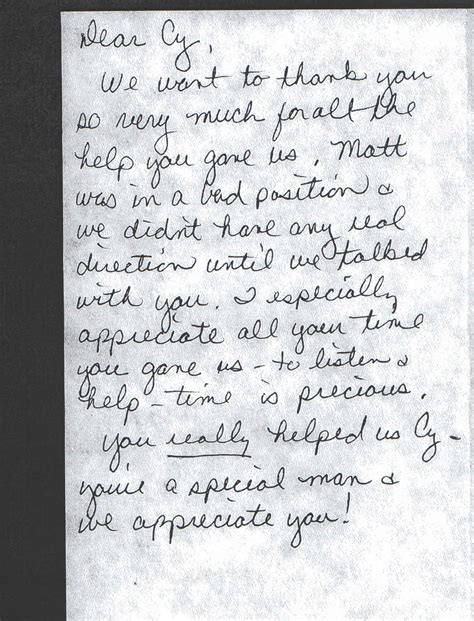 Dear Cy,
We want to thank you
so very much for all the
help you gave us. Matt
was in a bad position &
we didn't have any real
direction until we talked
with you. I especially
appreciate all your time
you gave us - to listen &
help - time is precious.
You really helped us Cy -
you're a special man &
we appreciate you!